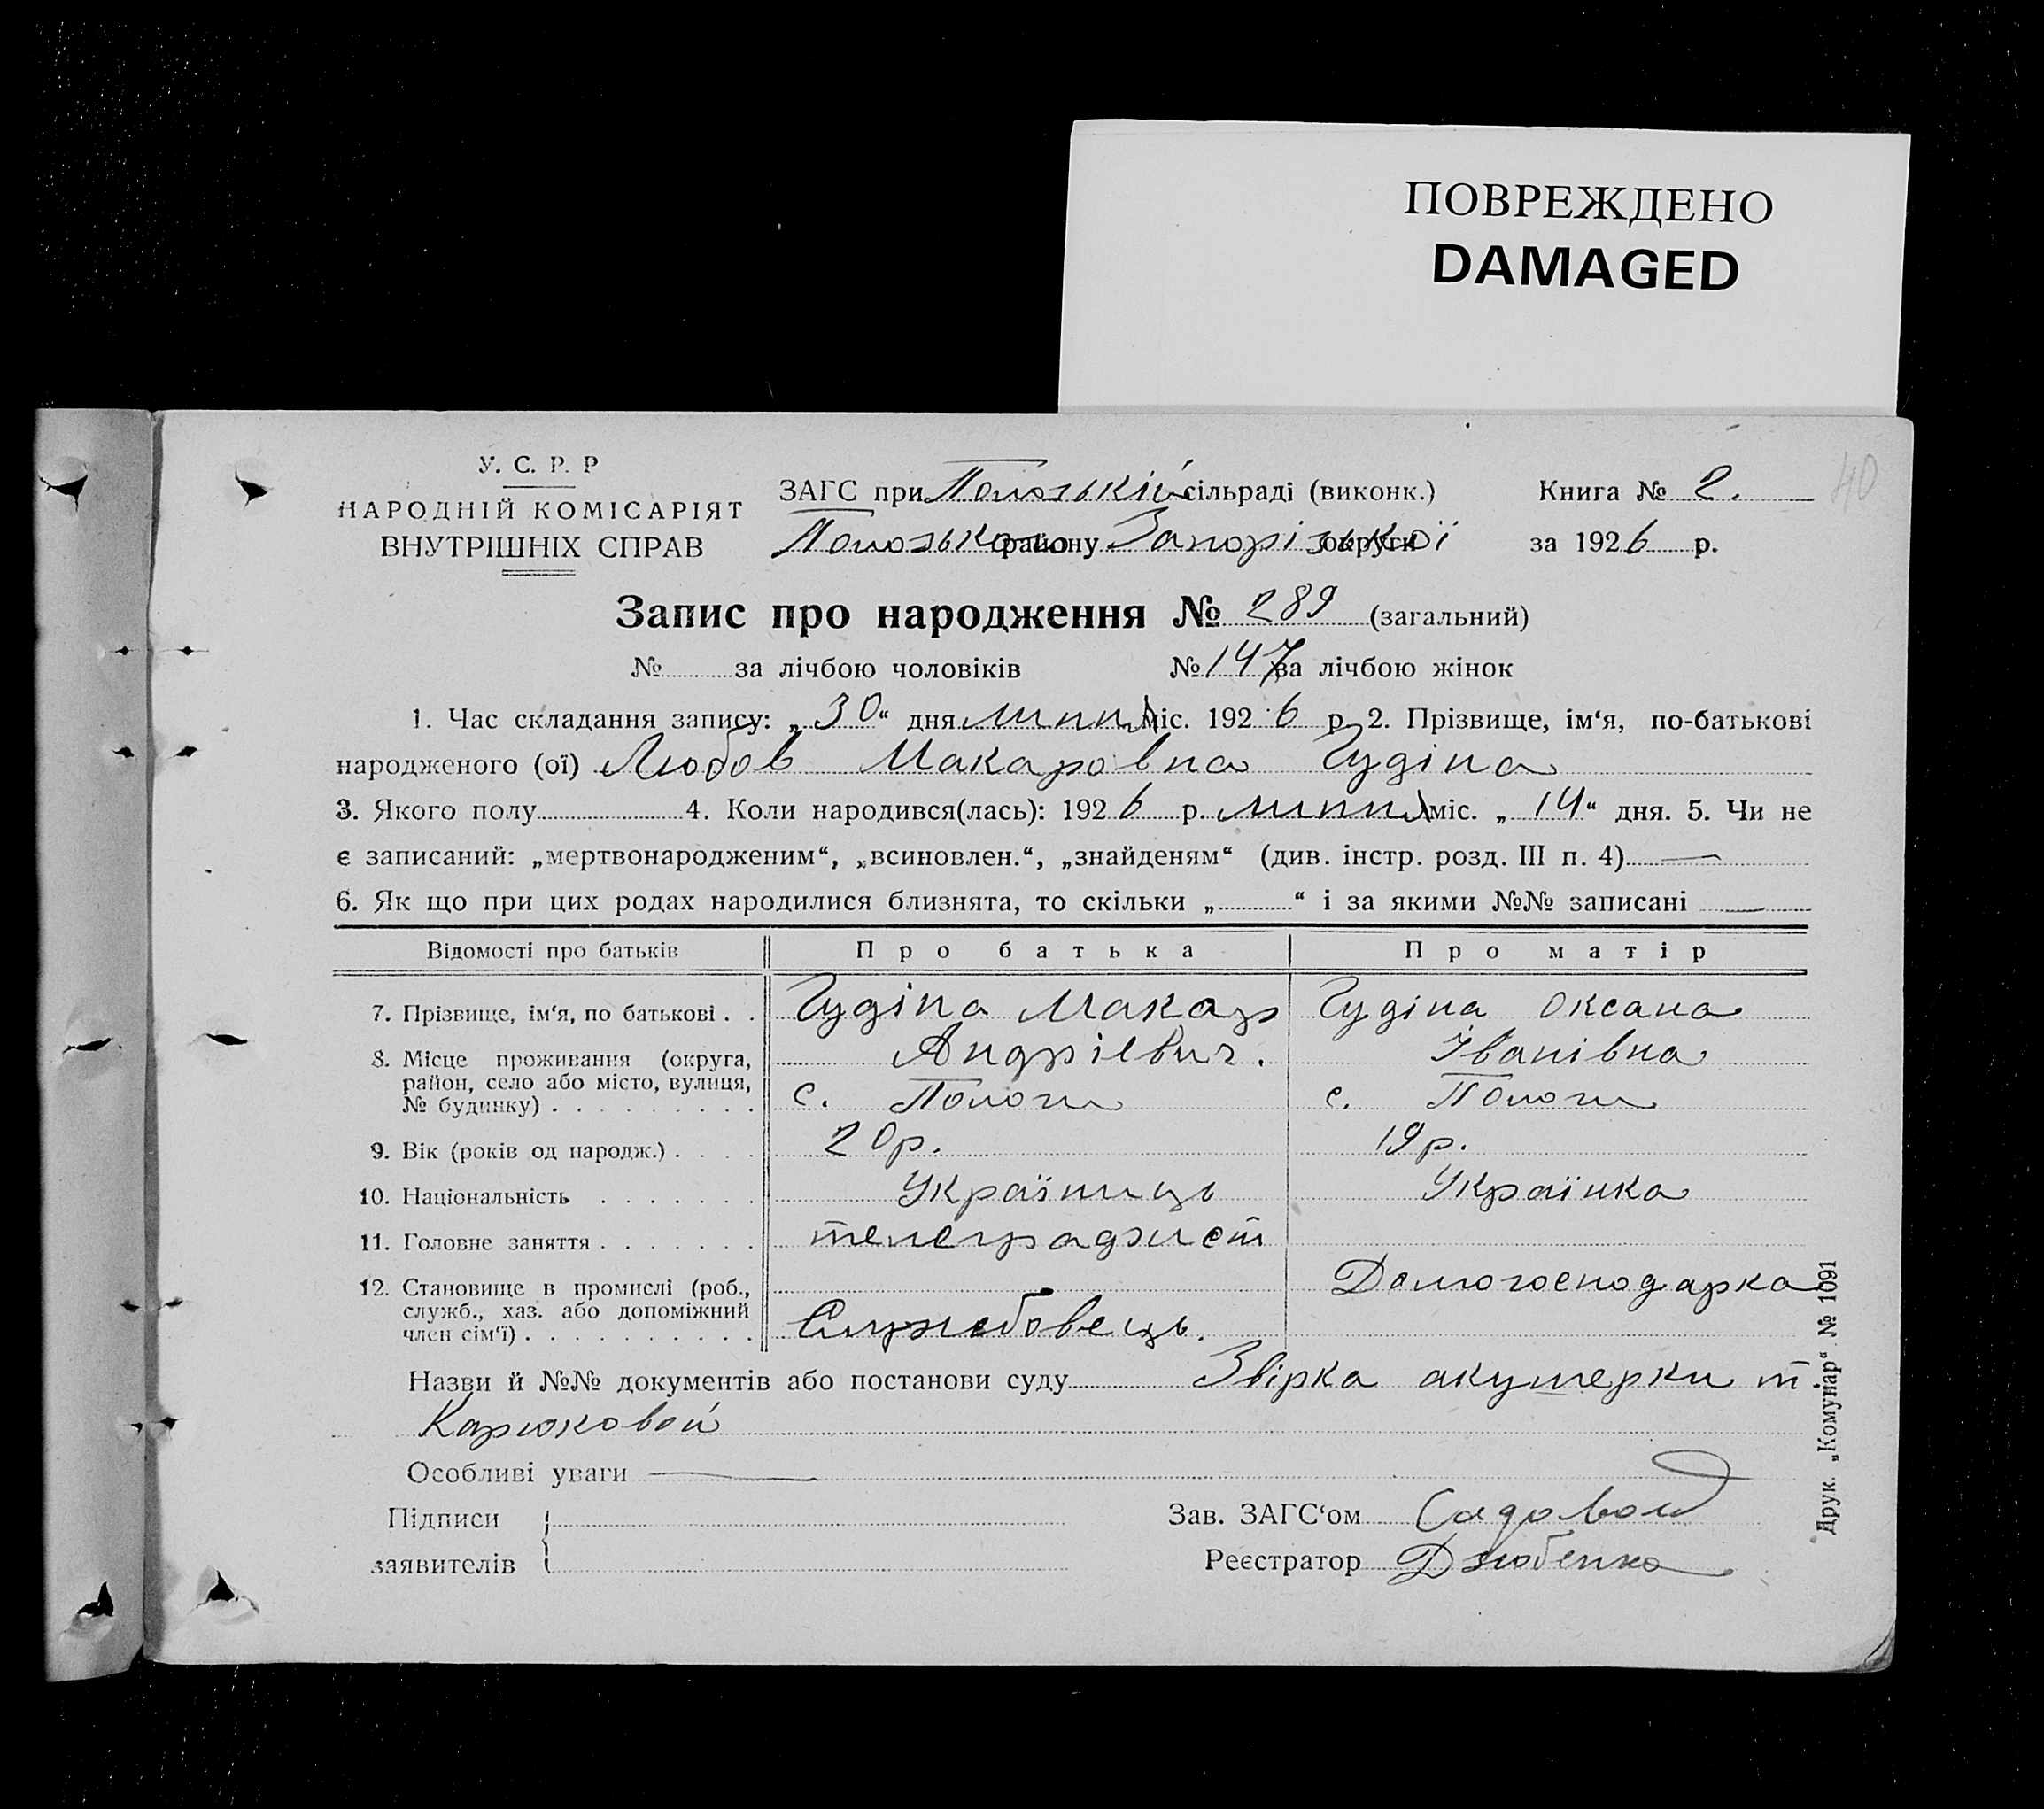 ПОВРЕЖДЕНО
DAMAGED
40
У. С. Р. Р
НАРОДНІЙ КОМІСАРІЯТ
ВНУТРІШНІХ СПРАВ
ЗАГС при Пологській сільраді (виконк.)
Пологського району Запорізької округи
Книга № 2.
за 1926 р.
Запис про народження № 289 (загальний)
№ за лічбою чоловіків № 147 за лічбою жінок
1. Час складання запису: „30“ дня липня міс. 1926 р. 2. Прізвище, ім‘я, по-батькові
народженого (ої) Любов Макаровна Гудіна
3. Якого полу 4. Коли народився(лась): 1926 р. липня міс. „14“ дня. 5. Чи не
є записаний: „мертвонародженим“, „всиновлен.“, „знайденям“ (див. інстр. розд. III п. 4) —
6. Як що при цих родах народилися близнята, то скільки „ “ і за якими №№ записані —
Відомості про батьків Про батька Про матір
7. Прізвище, ім‘я, по батькові . . Гудіна Макар Гудіна Оксана
Андрієвич. Іванівна
8. Місце проживання (округа,
район, село або місто, вулиця,
№ будинку) . . . . . . . . . с. Пологи с. Пологи
9. Вік (років од народж.) . . . . 20р. 19р.
10. Національність . . . . . . . Українець Українка
11. Головне заняття . . . . . . . телеграфист
12. Становище в промислі (роб., Домогосподарка
служб., хаз. або допоміжний
член сім‘ї) . . . . . . . . . . Службовець.
Назви й №№ документів або постанови суду Звірка акушерки т
Карюковой
Особливі уваги —
Підписи
заявителів
Зав. ЗАГС‘ом
Реєстратор Дзюбенко
Друк. „Комунар“ № 1091